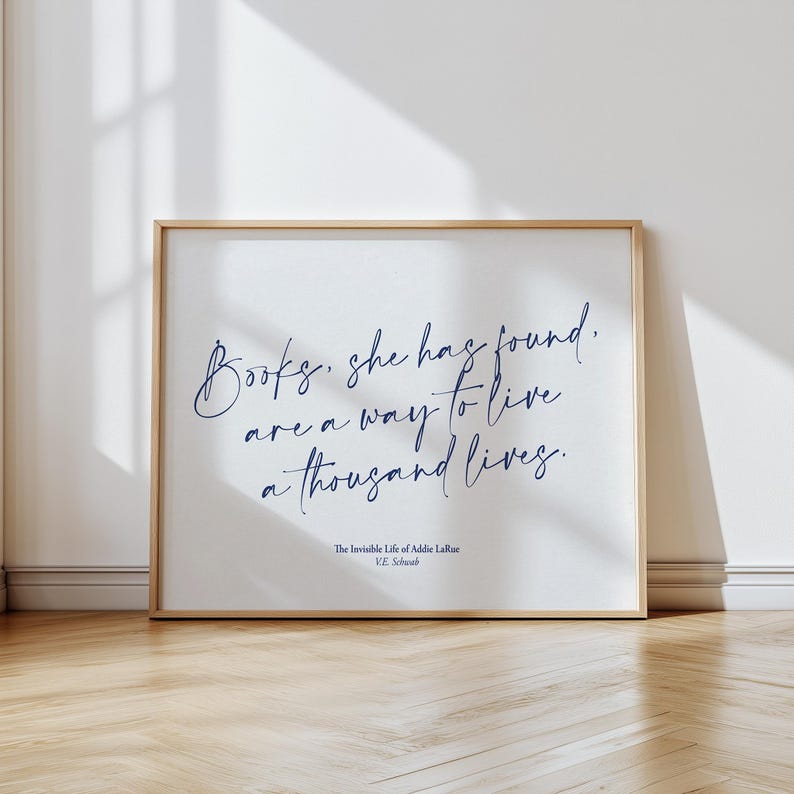 Books, she has found,
are a way to live
a thousand lives.
The Invisible Life of Addie LaRue
V.E. Schwab